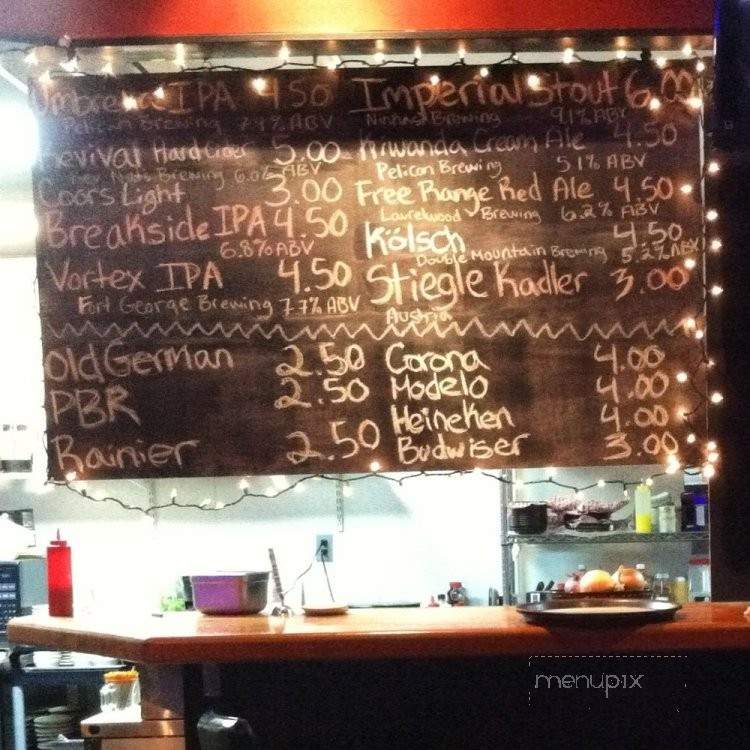 Umbrella IPA 4.50
Pelican Brewing 7.4% ABV
Revival Hard Cider 5.00
Brewing 6.0% ABV
Coors Light 3.00
Breakside IPA 4.50
6.8% ABV
Vortex IPA 4.50
Fort George Brewing 7.7% ABV
Imperial Stout 6.00
Ninkasi Brewing 9.1% ABV
Kiwanda Cream Ale 4.50
Pelican Brewing 5.1% ABV
Free Range Red Ale 4.50
Laurelwood Brewing 6.2% ABV
Kölsch 4.50
Double Mountain Brewing 5.2% ABV
Stiegle Radler 3.00
Austria
Old German 2.50
PBR 2.50
Rainier 2.50
Corona 4.00
Modelo 4.00
Heineken 4.00
Budwiser 3.00
menupix